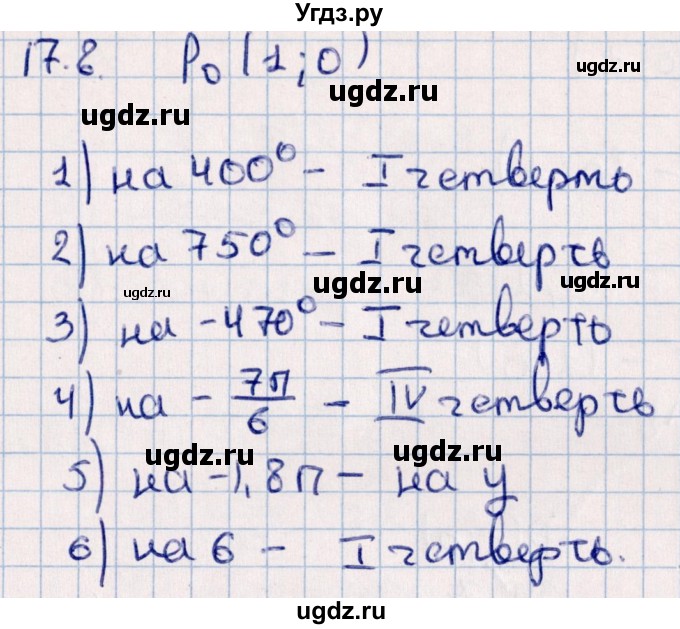 Угдз.ру
17.8. P₀ (1; 0)
ugdz.ru
ugdz.ru
ugdz.ru
1) на 400° – I четверть
2) на 750° – I четверть
ugdz.ru
ugdz.ru
ugdz.ru
3) на -470° – I четверть
4) на - 7π/6 – IV четверть
ugdz.ru
ugdz.ru
5) на -1,8π – на y
6) на 6 – I четверть.
ugdz.ru
ugdz.ru
ugdz.ru